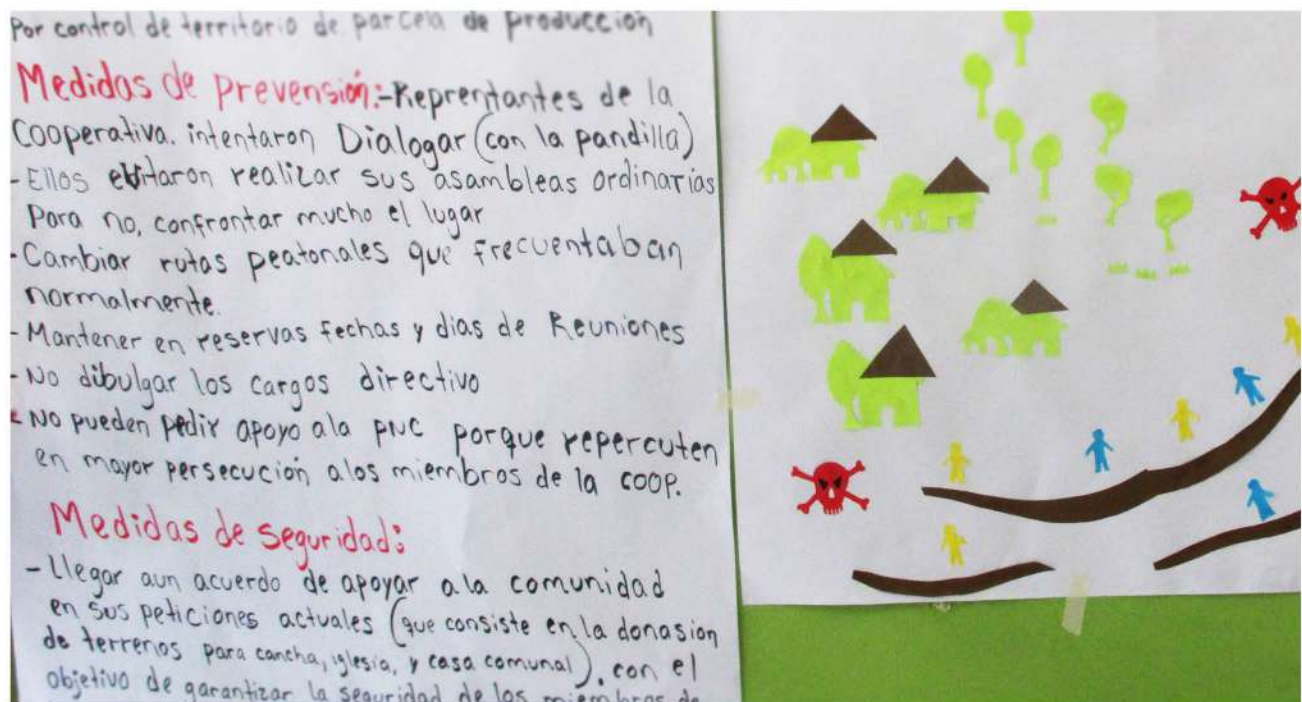 Por control de territorio de parcela de producción
Medidas de prevensión:-Reprentantes de la
Cooperativa. intentaron Dialogar (con la pandilla)
- Ellos evitaron realizar sus asambleas ordinarias
Para no, confrontar mucho el lugar
- Cambiar rutas peatonales que frecuentaban
normalmente.
- Mantener en reservas fechas y dias de Reuniones
- No dibulgar los cargos directivo
- No pueden pedir apoyo ala PNC porque repercuten
en mayor persecución alos miembros de la COOP.
Medidas de seguridad:
- Llegar aun acuerdo de apoyar ala comunidad
en sus peticiones actuales (que consiste en la donasion
de terrenos para cancha, iglesia, y casa comunal), con el
objetivo de garantizar la seguridad de los miembros de